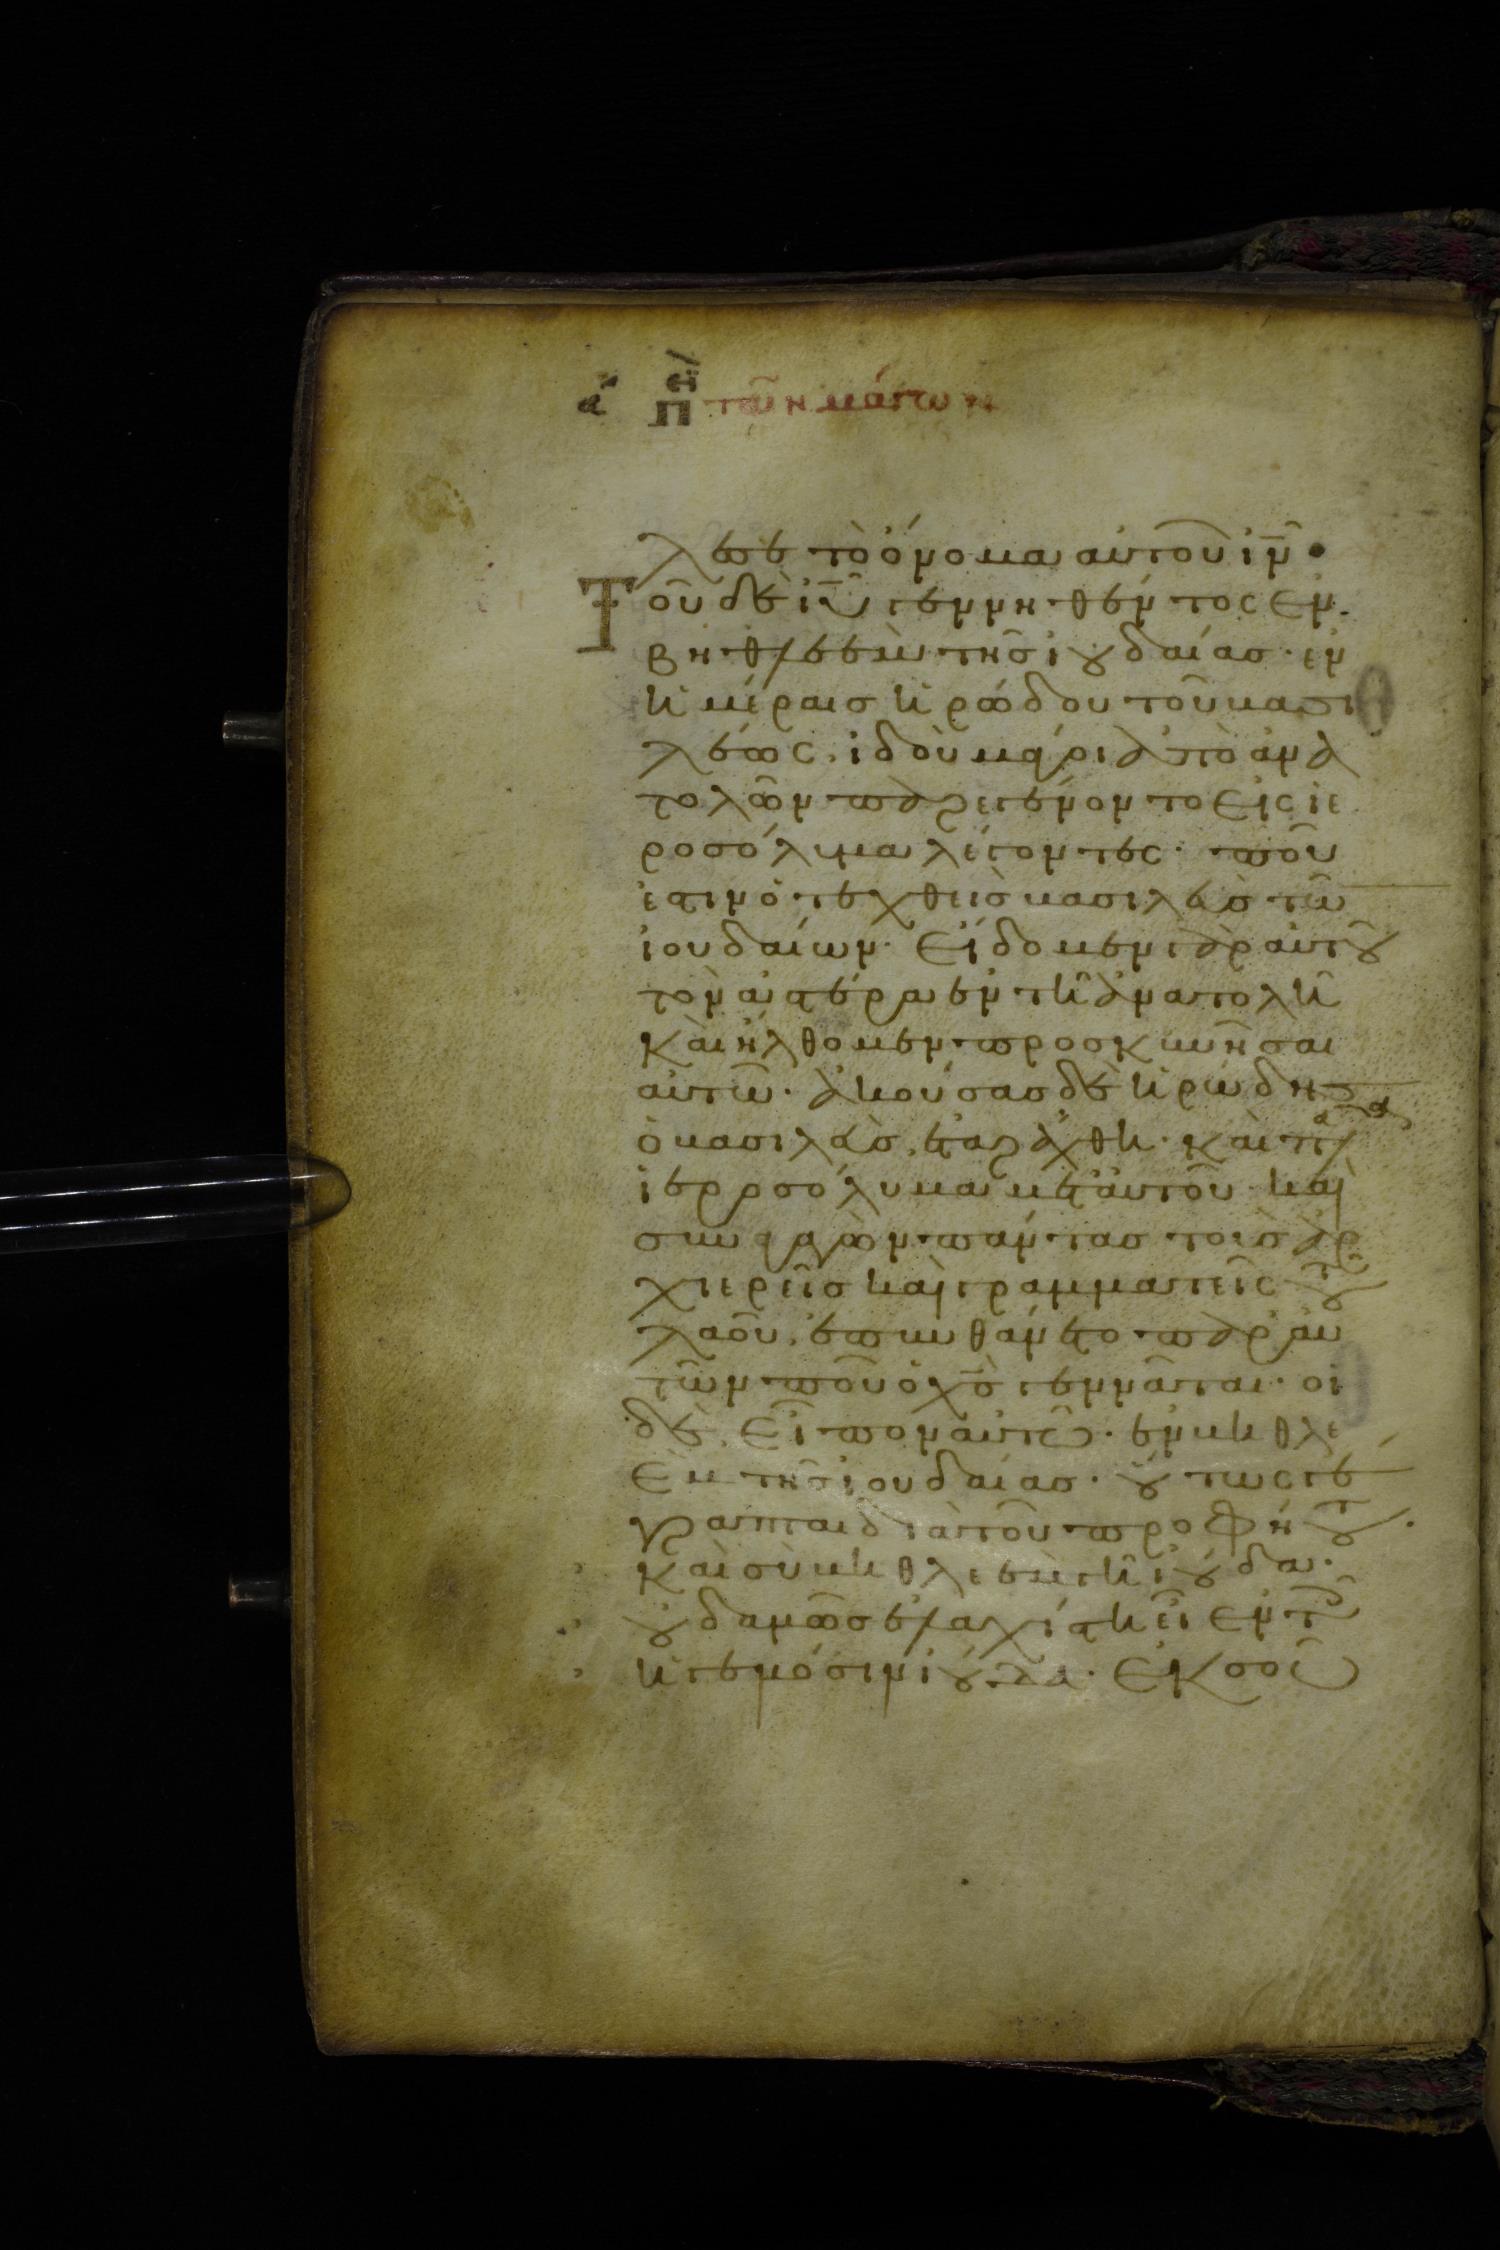 α π τῶν μάγων
λεσε τὸ ὄνομα αὐτοῦ ιν̅
Τοῦ δὲ ιυ̅ γεννηθέντος ἐν
βηθλεὲμ τῆς ἰουδαίας· ἐν
ἡμέραις ἡρώδου τοῦ βασι
λέως, ἰδοὺ μάγοι ἀπὸ ἀνα
τολῶν παρεγένοντο εἰς ἱε
ροσόλυμα λέγοντες· ποῦ
ἐστιν ὁ τεχθεὶς βασιλεὺς τῶν
ἰουδαίων· εἴδομεν γὰρ αὐτοῦ
τὸν ἀστέρα ἐν τῇ ἀνατολῇ
καὶ ἤλθομεν προσκυνῆσαι
αὐτῶ· ἀκούσας δὲ ἡρώδης
ὁ βασιλεὺς, ἐταράχθη· καὶ πᾶσα
ἱεροσόλυμα μετ' αὐτοῦ· καὶ
συναγαγὼν πάντας τοὺς ἀρ
χιερεῖς καὶ γραμματεῖς τοῦ
λαοῦ, ἐπυνθάνετο παρ' αὐ
τῶν ποῦ ὁ χς̅ γεννᾶται· οἱ
δὲ, εἶπον αὐτῶ· ἐν βηθλε
ὲμ τῆς ἰουδαίας· οὕτως γέ
γραπται διὰ τοῦ προφήτου·
καὶ σὺ βηθλεὲμ γῆ ἰούδα·
οὐδαμῶς ἐλαχίστη εἶ ἐν τοῖς
ἡγεμόσιν ἰούδα· ἐκ σοῦ